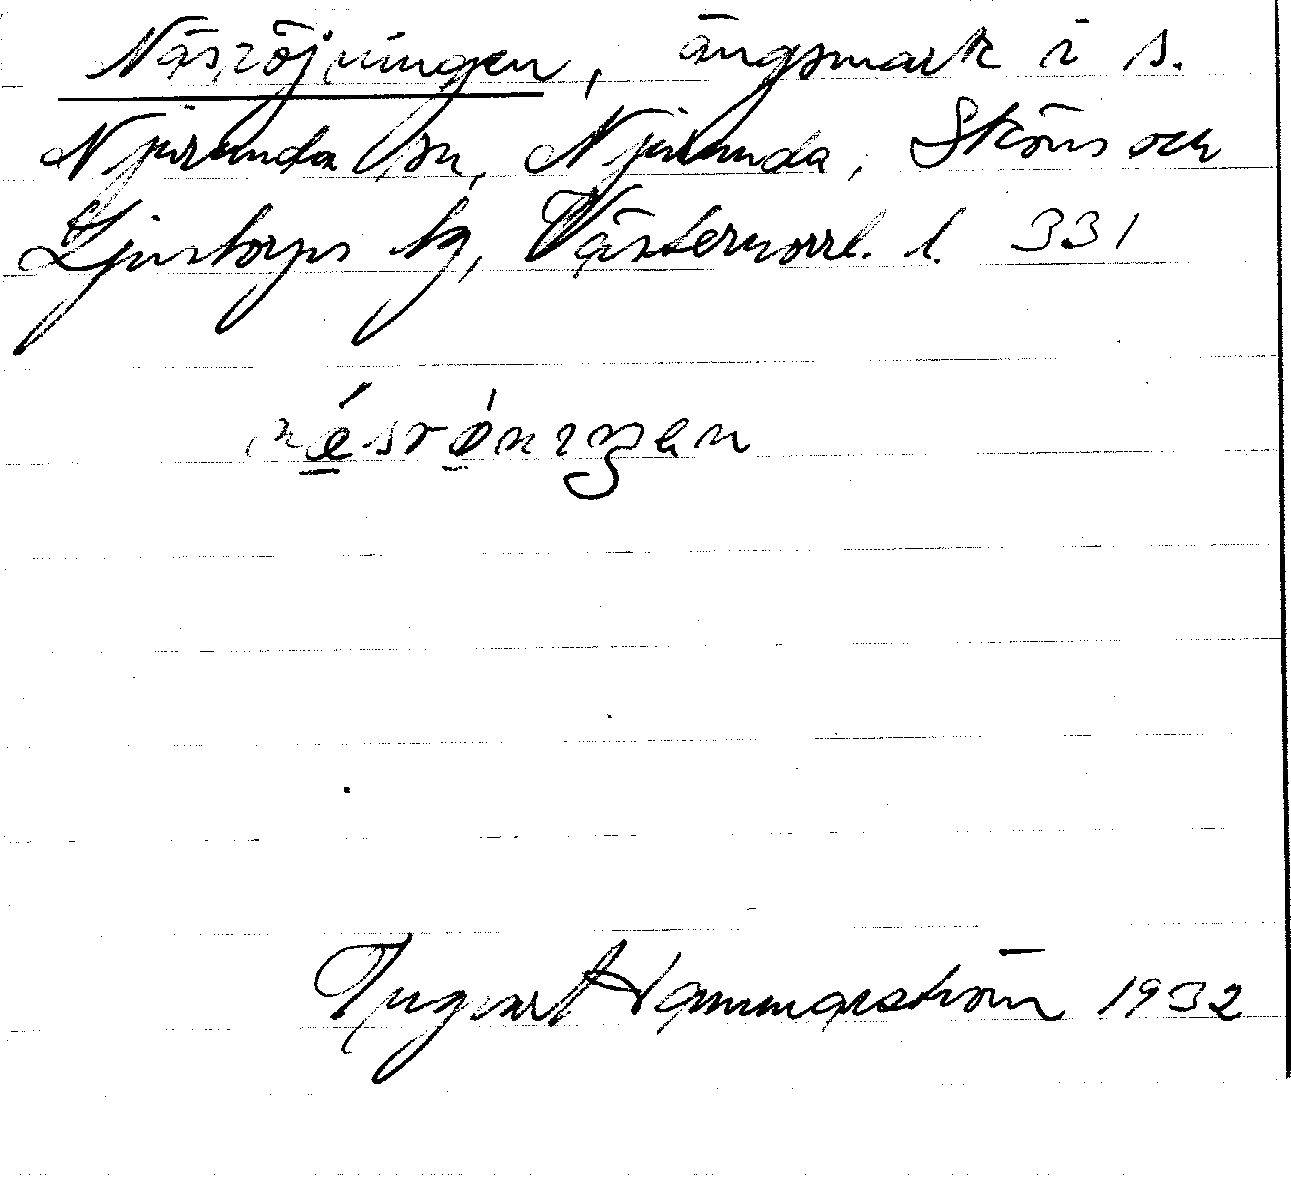 Näsröjningen, ängsmark i s.
Njurunda sn, Njurunda, Sköns och
Ljustorps tg, Västernorrl. l. 331
Ingvart Hammarström 1932